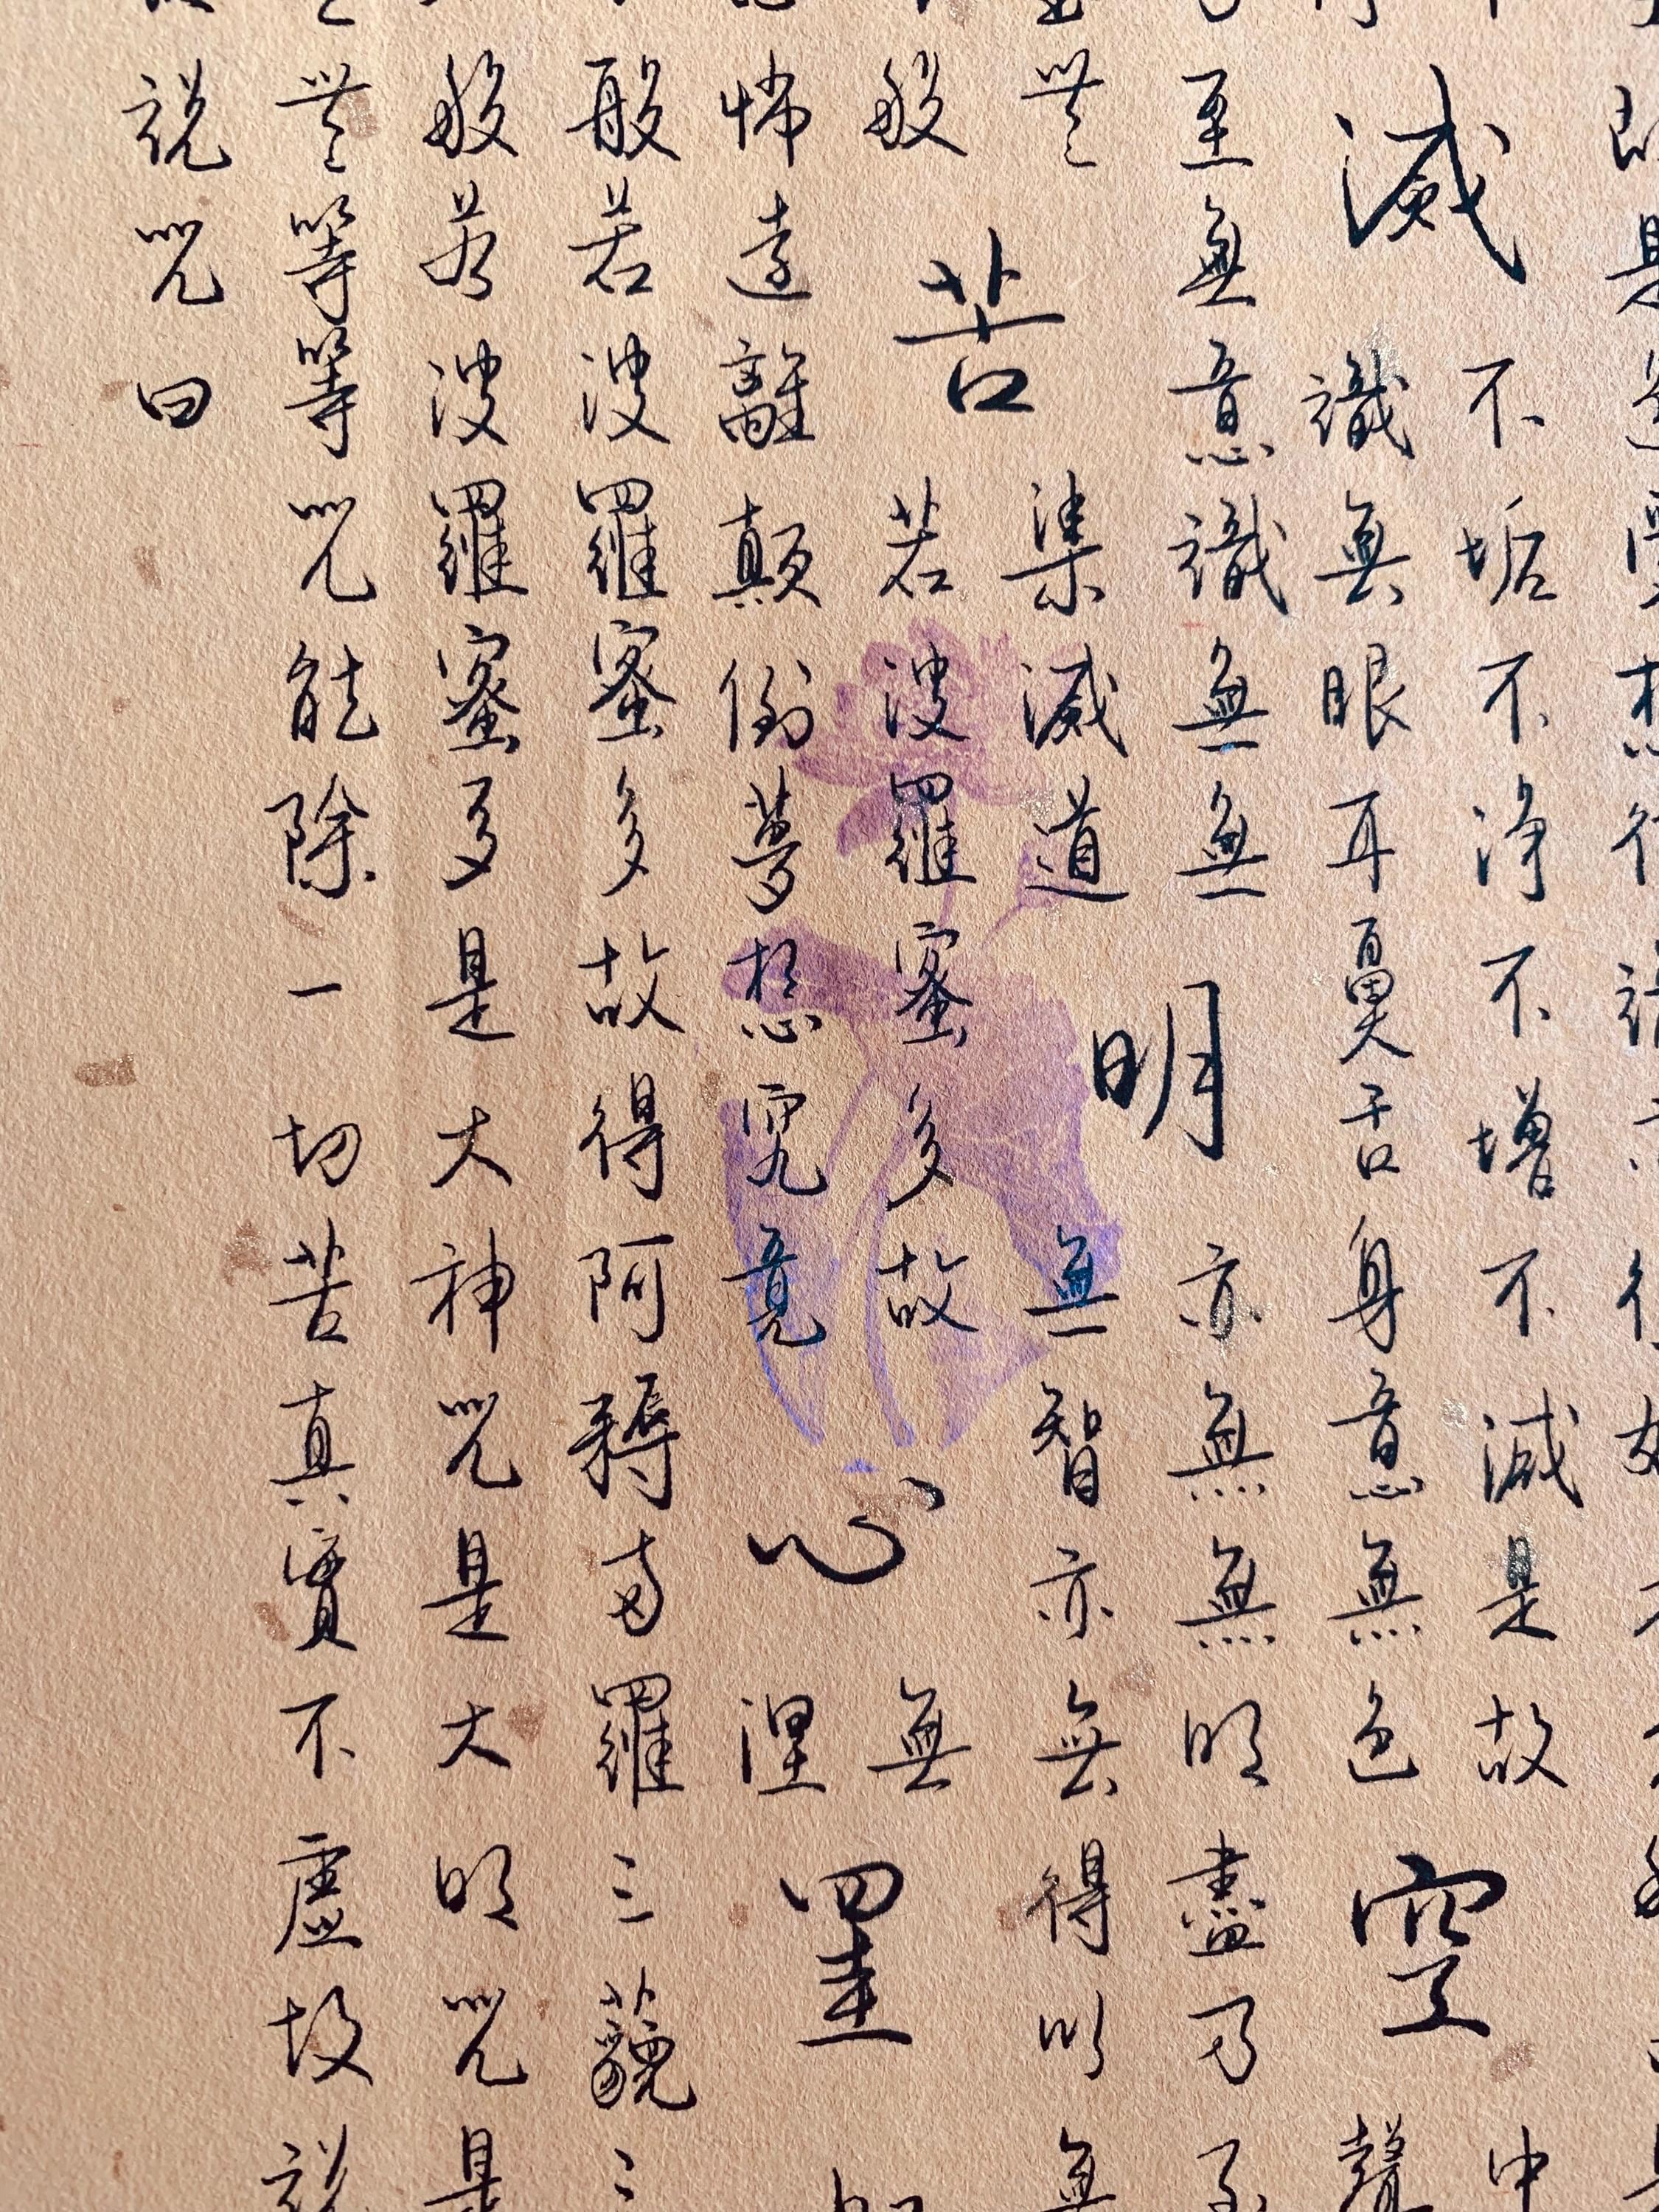 即是
受想行識
滅不垢不淨不增不減是故空中
識無眼耳鼻舌身意無色聲
至無意識無無明亦無無明盡乃至
無苦集滅道無智亦無得以無
般若波羅蜜多故心無罣
怖遠離顛倒夢想究竟涅
般若波羅蜜多故得阿耨多羅三藐三
般若波羅蜜多是大神咒是大明咒是
無等等咒能除一切苦真實不虛故說
說咒曰